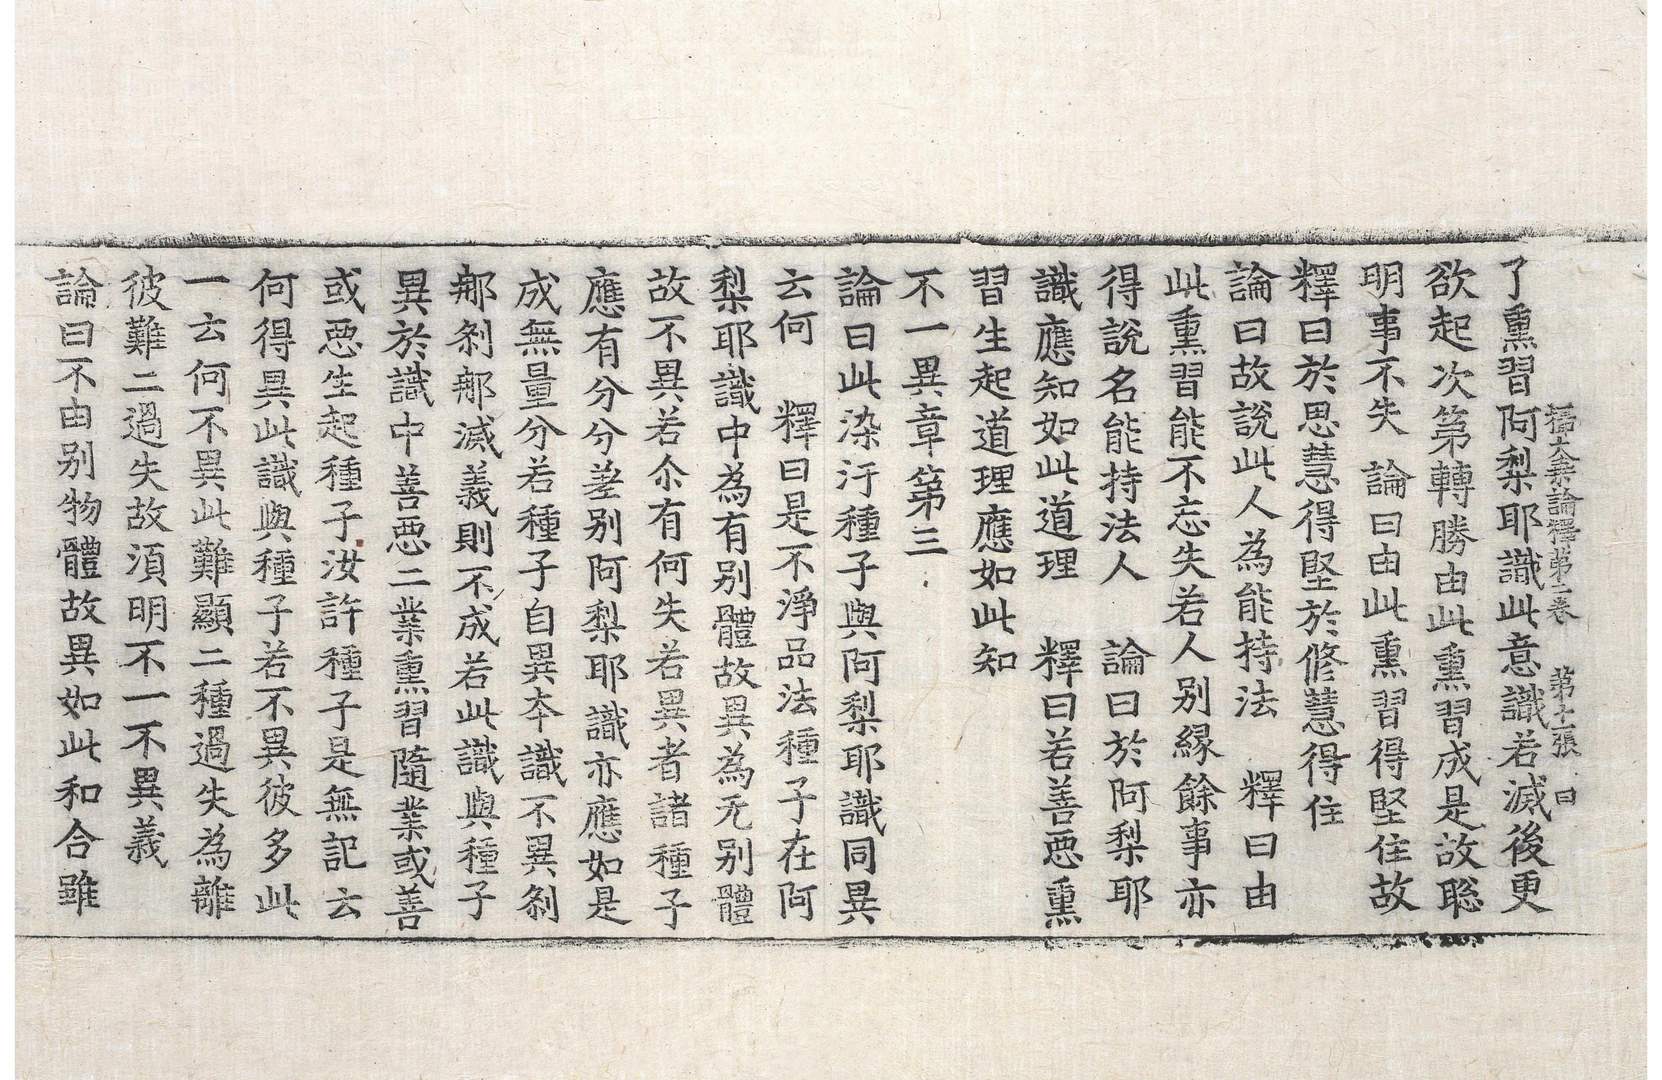 攝大乘論釋第二卷　第十二張　曰
了熏習阿梨耶識此意識若滅後更
欲起次第轉勝由此熏習成是故聡
明事不失　論曰由此熏習得堅住故
釋曰於思慧得堅於修慧得住
論曰故說此人為能持法　釋曰由
此熏習能不忘失若人別緣餘事亦
得說名能持法人　論曰於阿梨耶
識應知如此道理　釋曰若善惡熏
習生起道理應如此知
不一異章第三
論曰此染汙種子與阿梨耶識同異
云何　釋曰是不淨品法種子在阿
梨耶識中為有別體故異為无別體
故不異若尒有何失若異者諸種子
應有分分差別阿梨耶識亦應如是
成無量分若種子自異夲識不異剎
郍剎郍滅義則不成若此識與種子
異於識中善惡二業熏習隨業或善
或惡生起種子汝許種子是無記云
何得異此識與種子若不異彼多此
一云何不異此難顯二種過失為離
彼難二過失故湏明不一不異義
論曰不由別物體故異如此和合雖